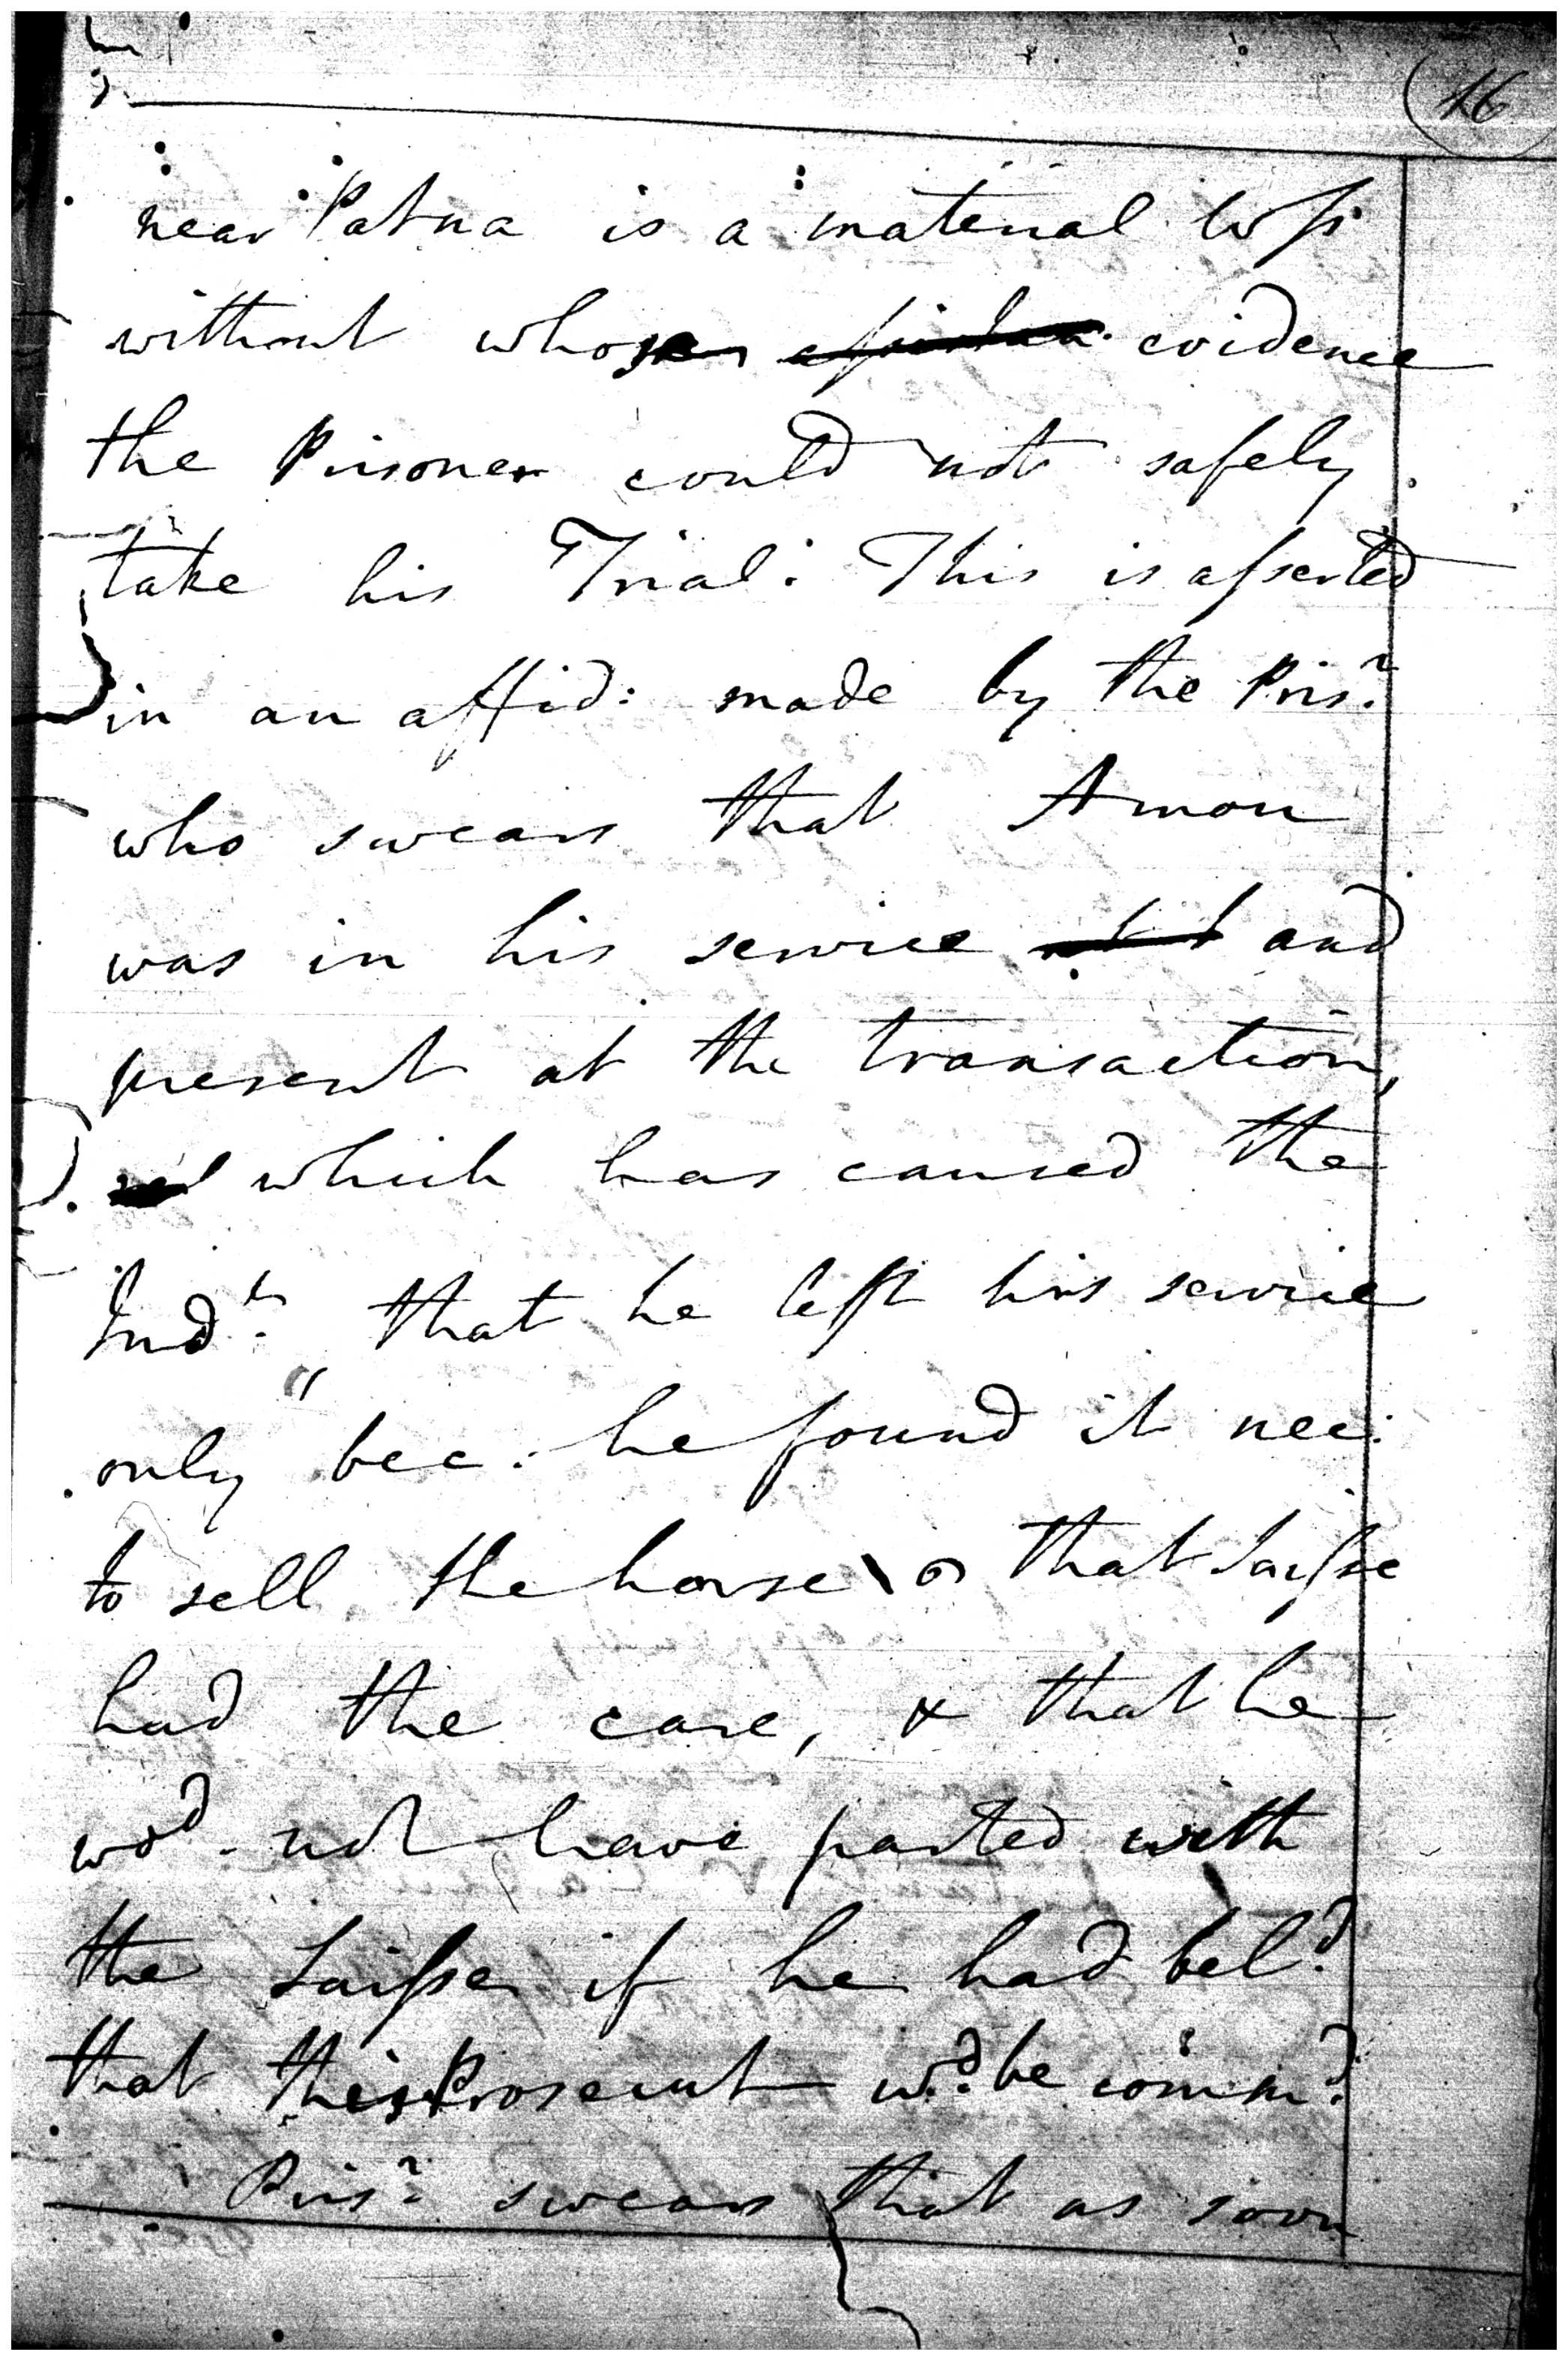 16
near Patna is a material loss
without whose evidence
the Prisoner could not safely
take his Trial: This is asserted
in an affid: made by the Prisr.
who swears that Amon
was in his service and
present at the transaction,
which has caused the
Indt. that he left his service
only bec: he found it nec:
to sell the horse that Saisse
had the care, & that he
wod. not have parted with
the Saisse if he had beld.
that this Prosecut wd. be comm:d
Prisr. swears that as soon